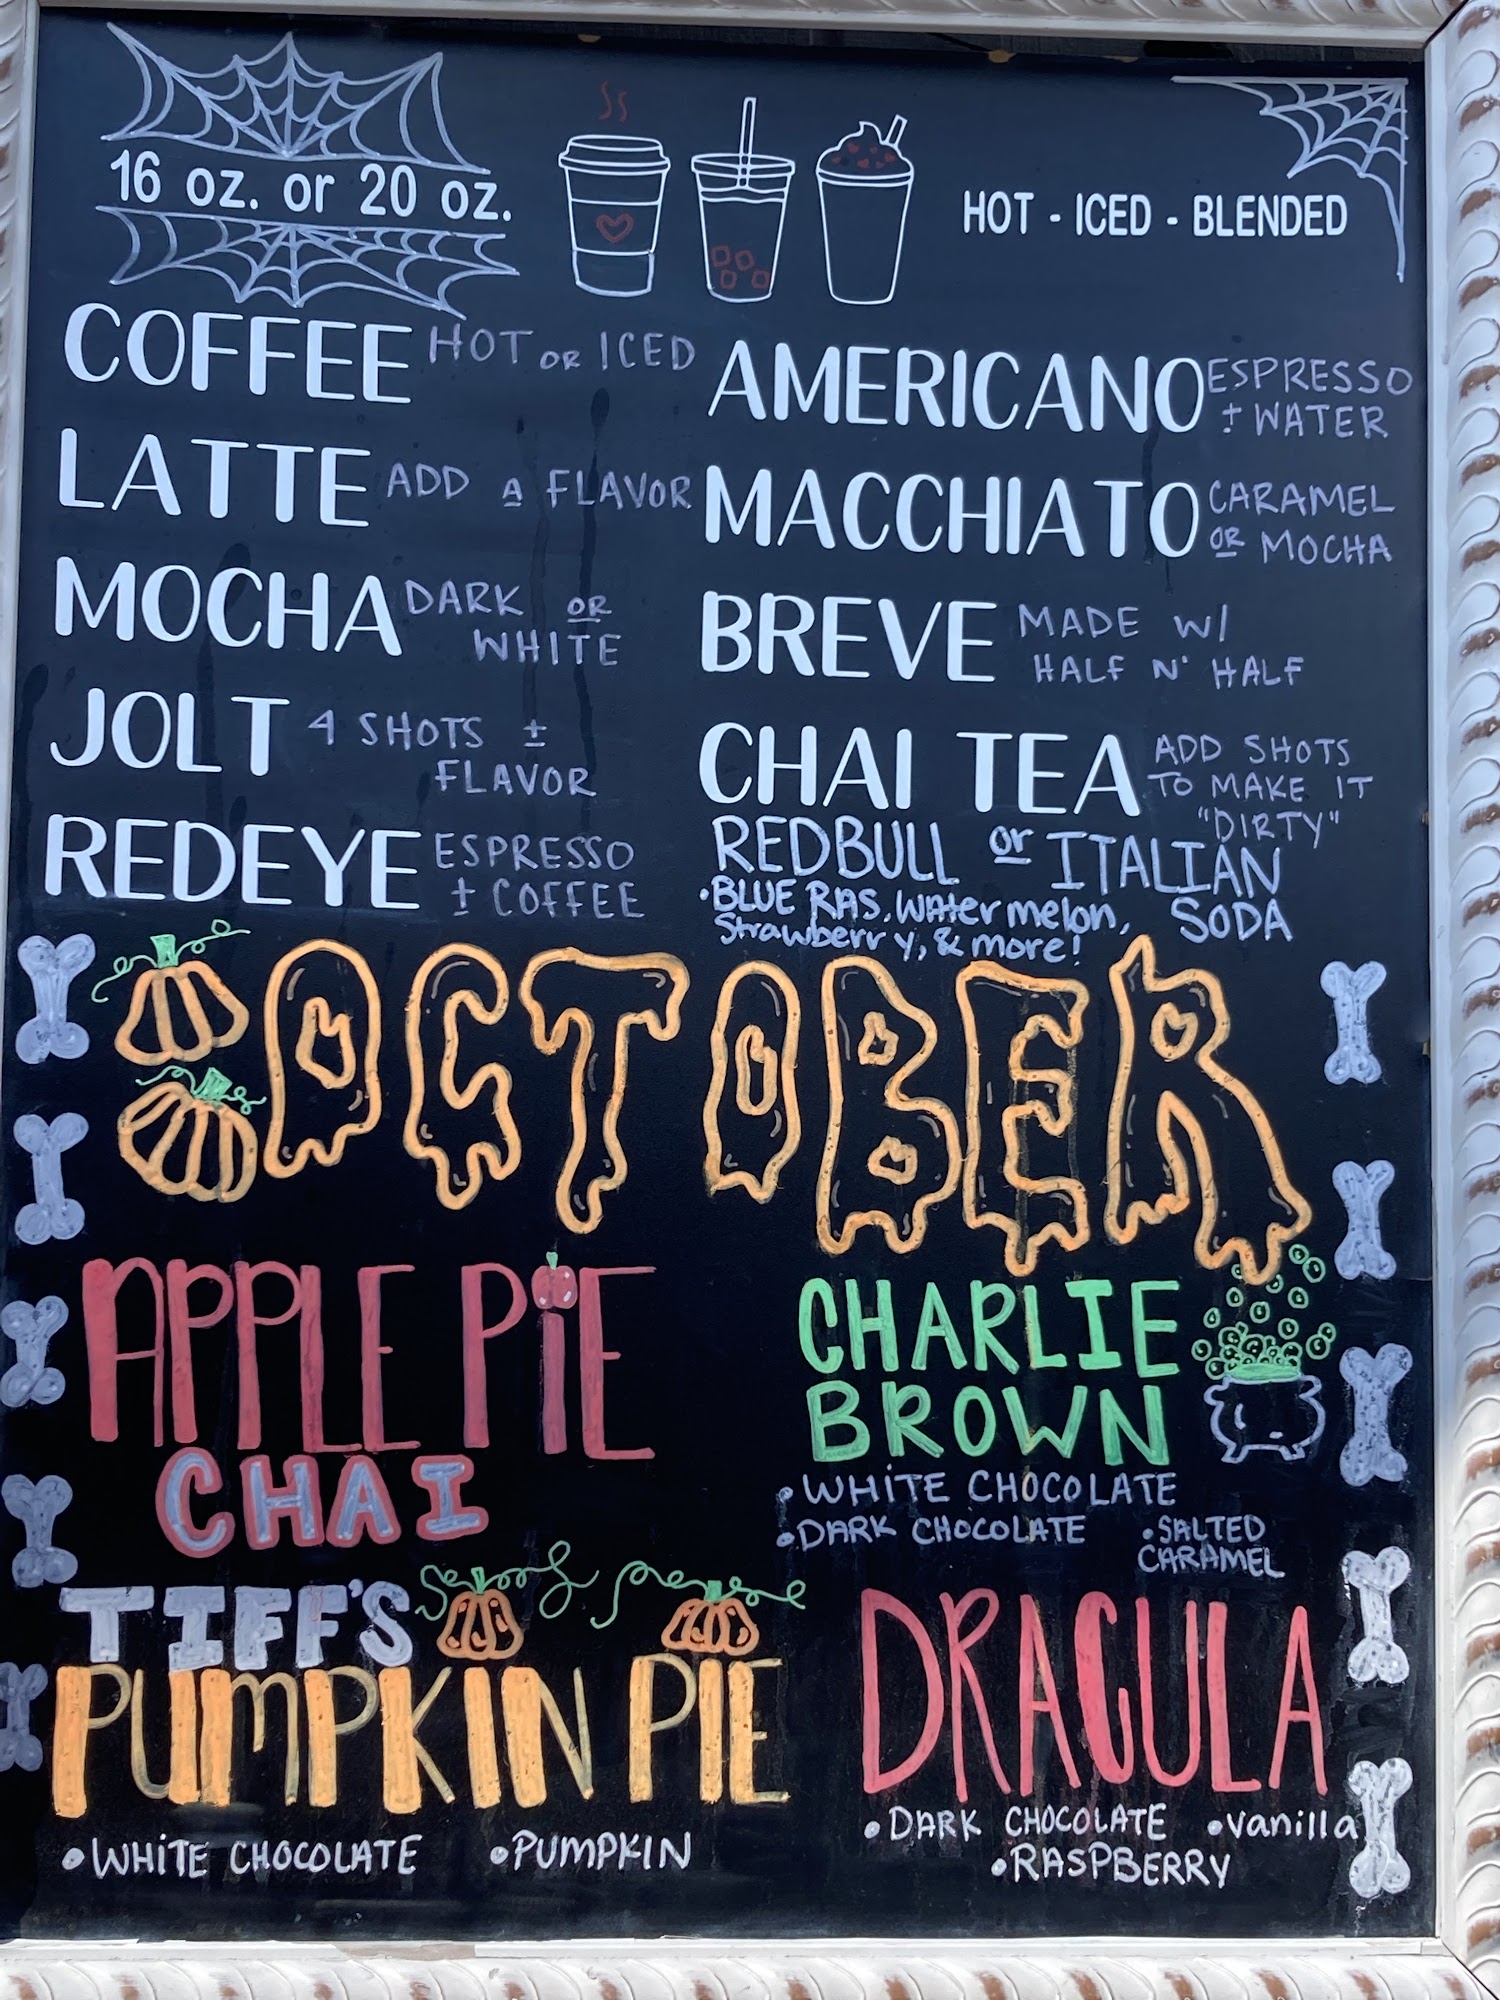 16 oz. or 20 oz.
HOT - ICED - BLENDED
COFFEE HOT OR ICED
LATTE ADD A FLAVOR
MOCHA DARK OR
WHITE
JOLT 4 SHOTS ±
FLAVOR
REDEYE ESPRESSO
± COFFEE
AMERICANO ESPRESSO
± WATER
MACCHIATO CARAMEL
OR MOCHA
BREVE MADE W/
HALF N' HALF
CHAI TEA ADD SHOTS
TO MAKE IT
"DIRTY"
REDBULL or ITALIAN
SODA
•BLUE RAS, Watermelon,
Strawberry, & more!
OCTOBER
APPLE PiE
CHAI
CHARLIE
BROWN
•WHiTE CHOCOLATE
•DARK CHOCOLATE
•SALTED
CARAMEL
TIFF'S
PUmPKIN PIE
•WHiTE CHOCOLATE •PUMPKIN
DRACULA
•DARK CHOCOLATE •vanilla
•RASPBERRY